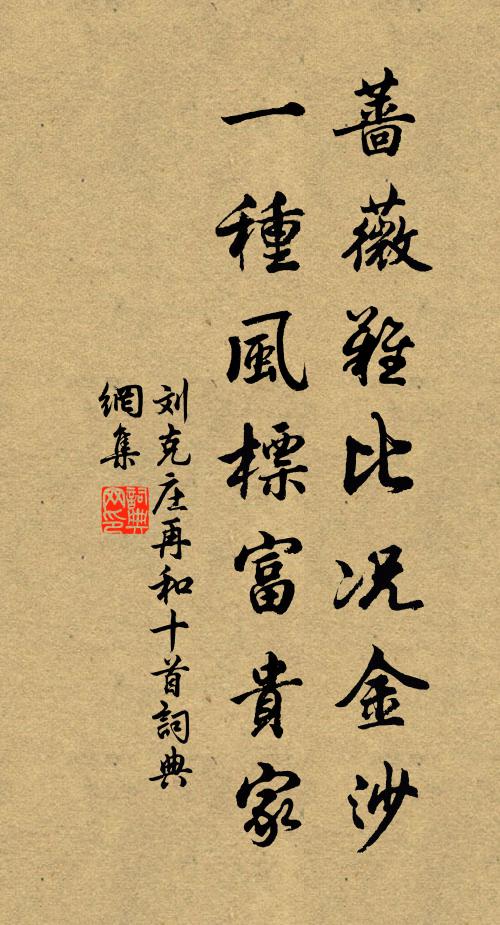 蔷薇難比况金沙
一種風標富貴家
刘克庄再和十首詞典
網集
詞典网印